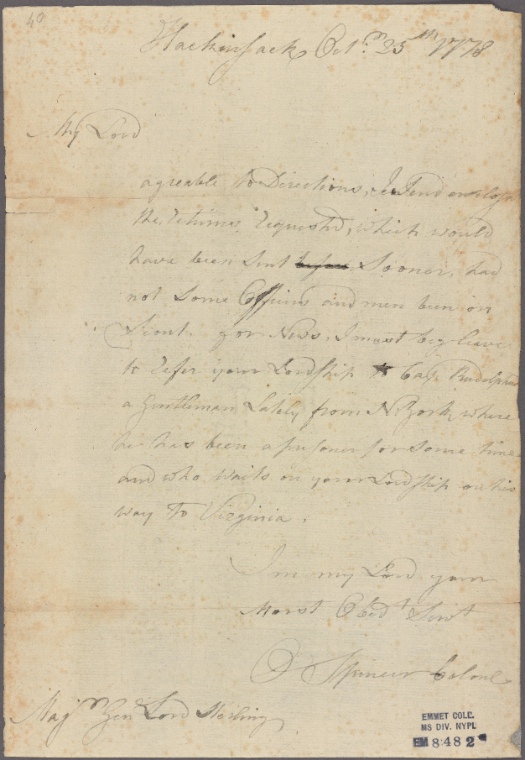 40
Hackinsack Octr. 25th 1778
My Lord
agreable to Directions, I Send enclos
the returns requested, which would
have been Sent before Sooner, had
not Some Officers and men been on
Scout. for News, I must beg leave
to refer your Lordship to Cap. Rudolph
a Gentleman Lately from N York, where
he has been a prisoner for Some time
and who waits on your Lordship on his
way to Virginia.
I'm my Lord your
Most Obedt Servt
O Spencer Colonel
Majr Genl Lord Sterling
EMMET COLL.
MS DIV. NYPL
EM 8482